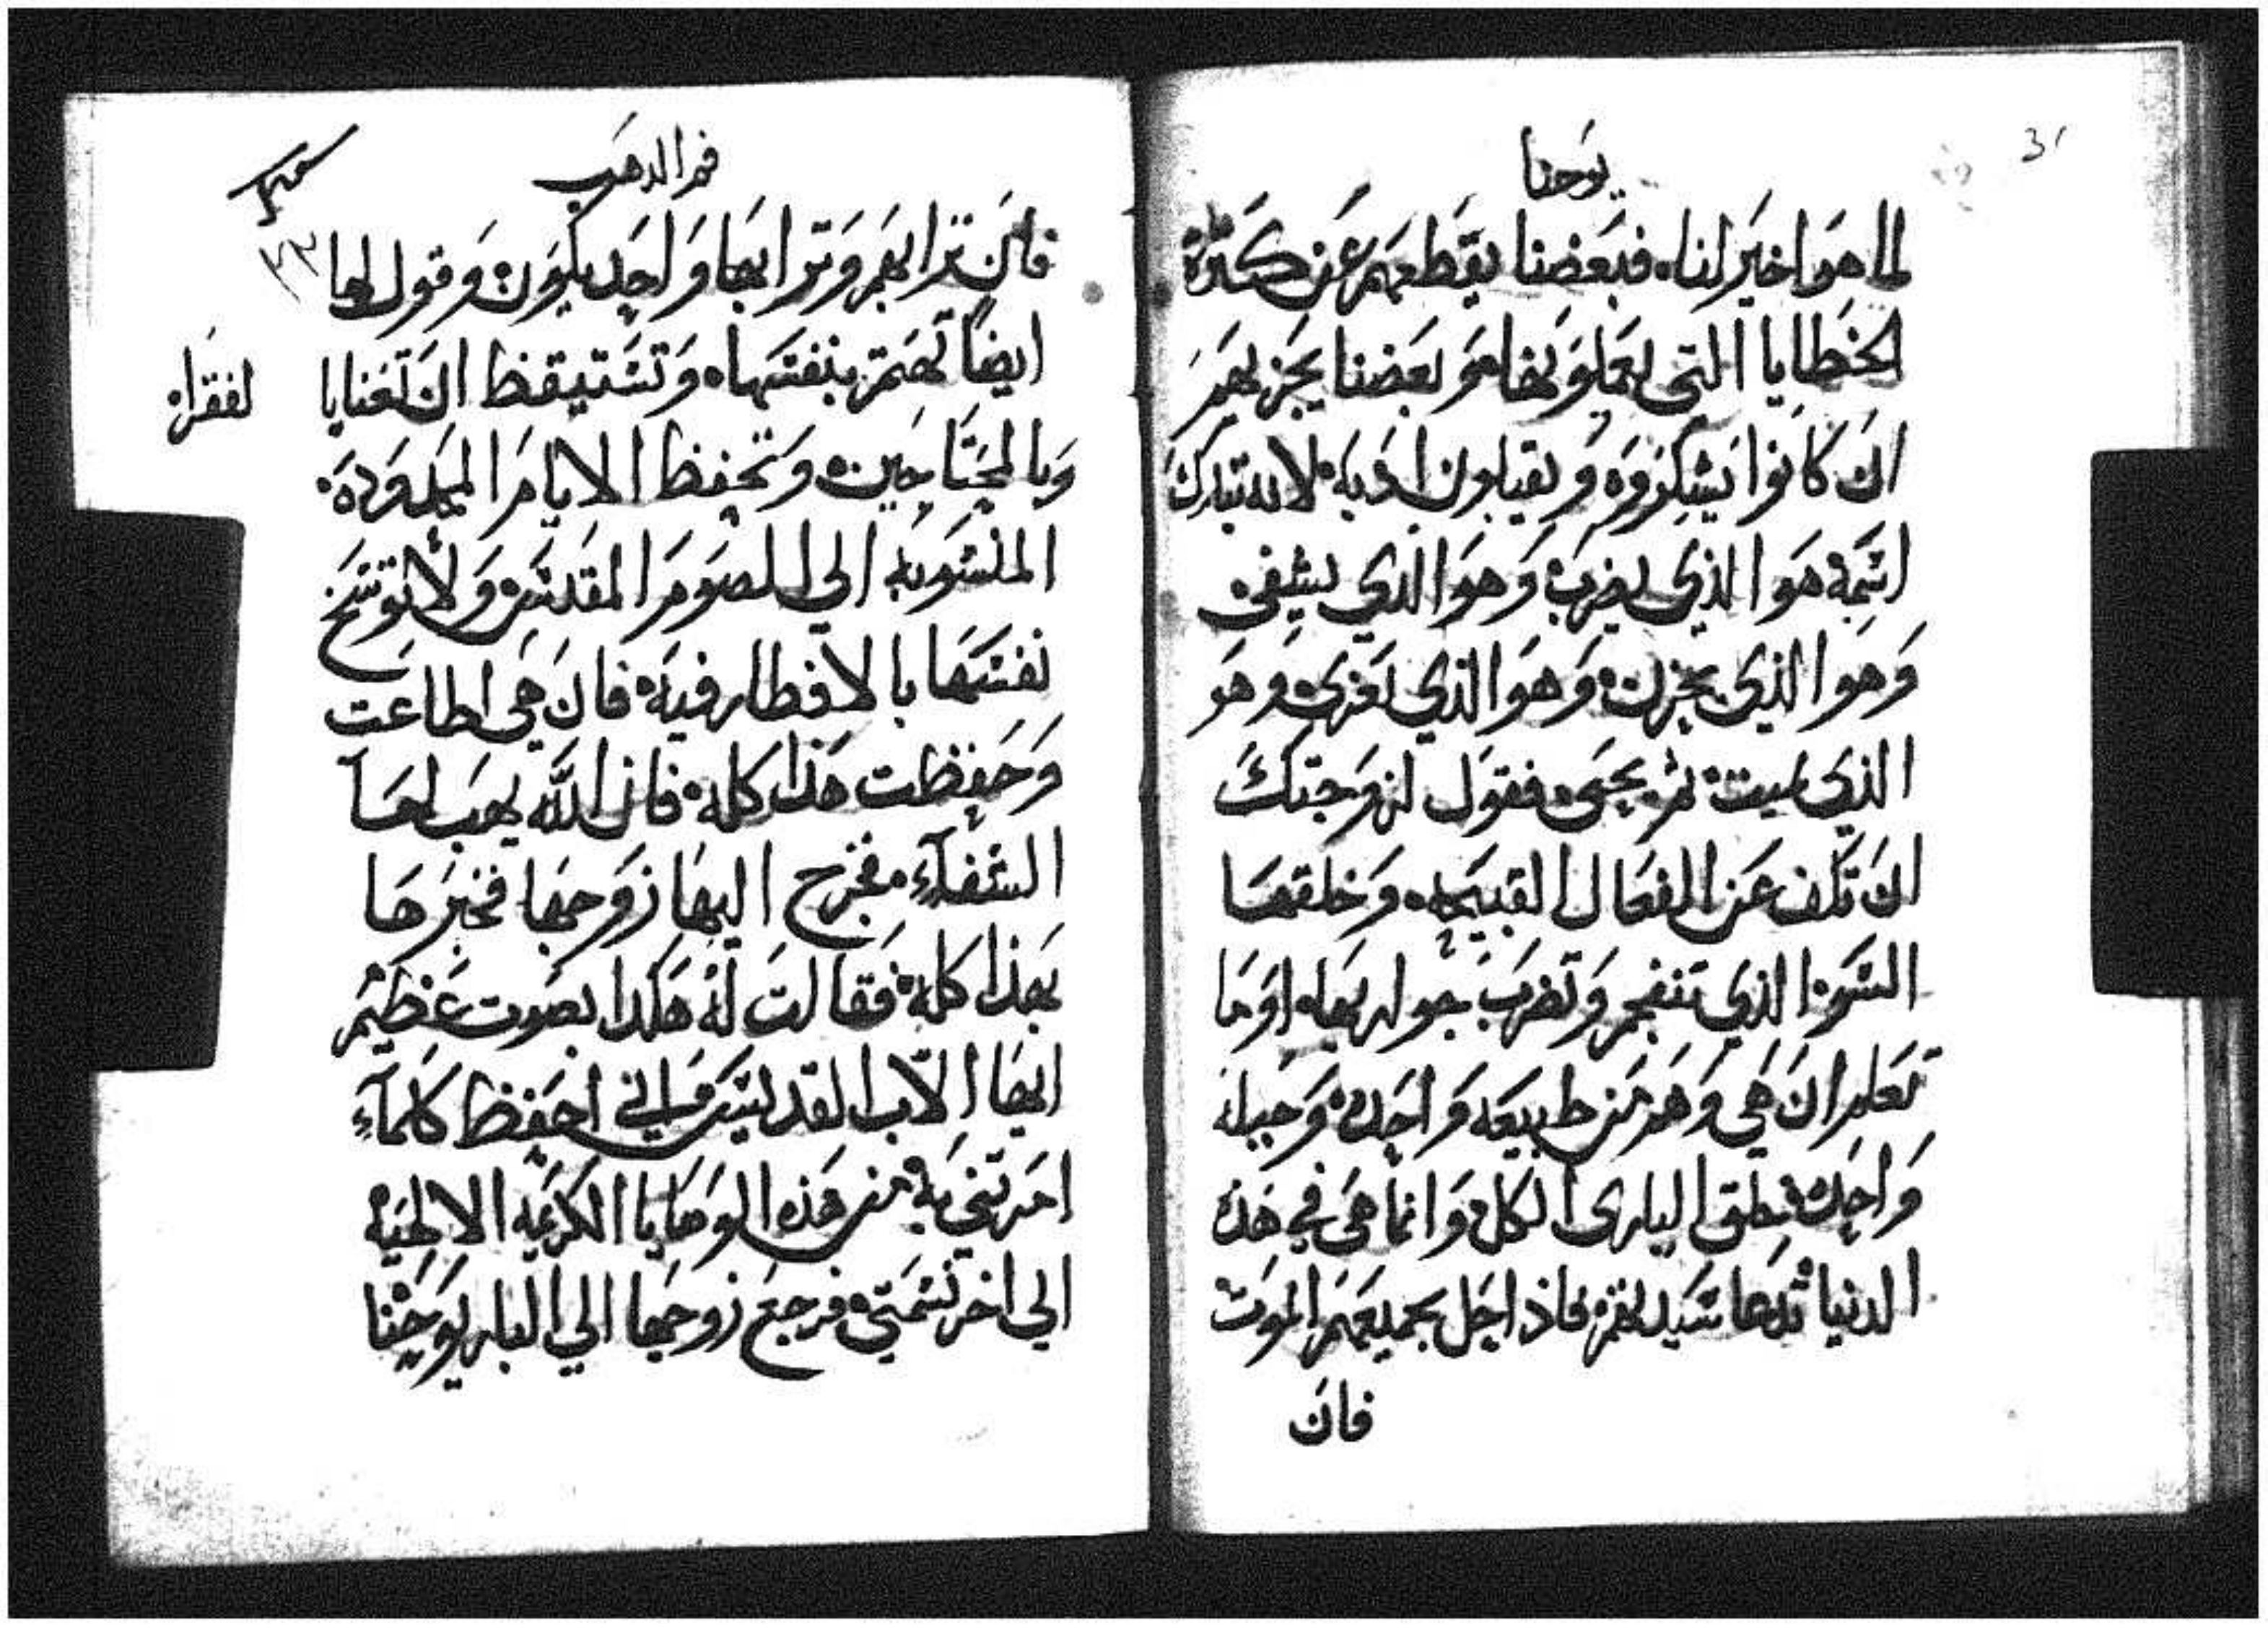 31
يوحنا
لما هو اخير لنا. فبعضنا يقطعهم عن كثرة
الخطايا التي يعملونها و بعضنا يجزيهم
ان كانوا يشكروه و يقبلون ادبه لانه تبارك
اسمه هو الذي يضرب وهو الدي يشفي
وهو الذي يحزن وهو الذي يعزي وهو
الذي يميت ثم يحيي فقول لزوجتك
ان تكف عن الفعال القبيحه. وخلقها
السو الذي تنفجر وتضرب جوارها. اوما
تعلم ان هي وهم من طبيعه واحده وجبله
واحده خلق الباري الكل وانما هي في هذه
الدنيا سيد لهم فاذا حل بجميعهم الموت
فان
فم الدهب
٣٢
فان ترابهم وترابها واحد يكون وقول لها
ايضا تهتم بنفسها. وتستيقظ ان تعنا با
لفقراء
وبالمحتاجين وتحفظ الايام المحدوده.
المنسوبه الي الصوم المقدس ولا توسخ
نفسها بالافطار فيه فان هي اطاعت
وحفظت هذا كله فان الله يهب لها
الشفاء. فخرج اليها زوجها فخبرها
بهذا كله فقالت له هكدا بصوت عظيم
ايها الاب القديس اني احفظ كلما
امرتني به من هذه الوصايا الكريمه الالهيه
الي اخر نسمتي فرجع زوجها الي البار يوحنا